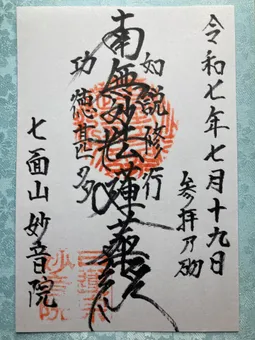 令和七年七月十九日
参拝乃砌
如説修行
南無妙法蓮華経
功徳甚多
七面山 妙音院